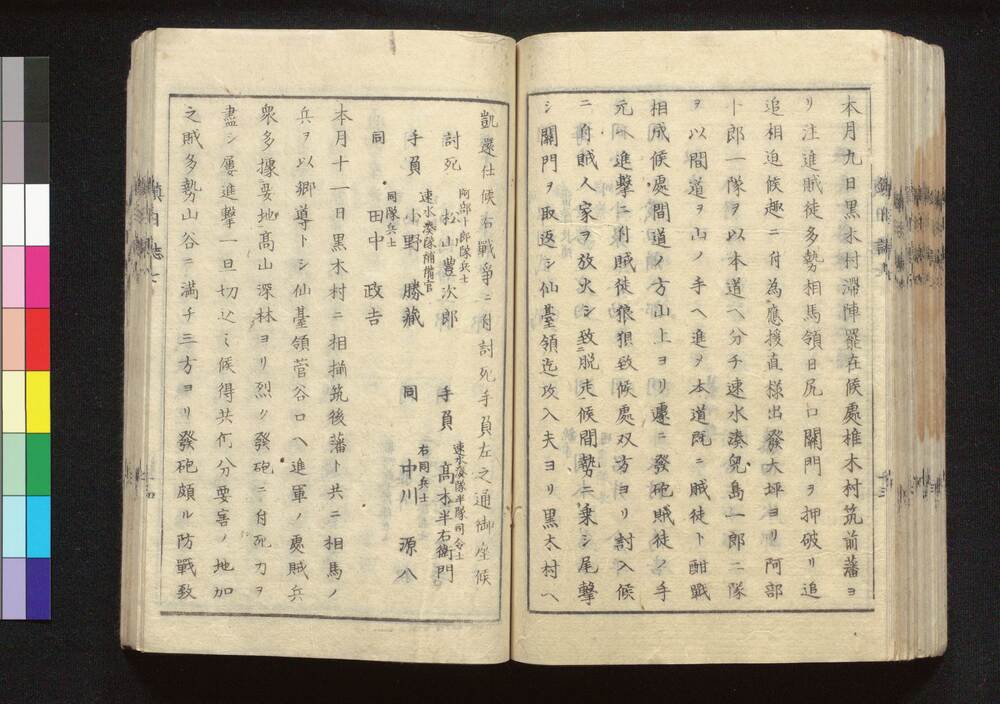 本月九日黒木村滞陣罷在候處椎木村筑前藩ヨ
リ注進賊徒多勢相馬領日尻口關門ヲ押破リ追
追相迫候趣ニ付為應援直様出發大坪ヨリ阿部
十郎一隊ヲ以本道ヘ分チ速水湊兒島一郎二隊
ヲ以間道ヲ山ノ手ヘ進ヌ本道既ニ賊徒ト酣戰
相成候處間道ノ方山上ヨリ遽ニ發砲賊徒ノ手
元ヘ進撃ニ付賊徒狼狽致候處双方ヨリ討入候
ニ付賊人家ヲ放火シ致脱走候間勢ニ乗シ尾撃
シ關門ヲ取返シ仙臺領迄攻入夫ヨリ黒木村ヘ
凱還仕候右戰爭ニ付討死手負左之通御座候
阿部十郎隊兵士
討死 松山豊次郎
速水湊隊半隊司令士
手負 髙木半右衞門
速水湊隊補備官
手負 小野勝藏
右同兵士
同 中川源八
同隊兵士
同 田中政吉
本月十一日黒木村ニ相揃筑後藩ト共ニ相馬ノ
兵ヲ以郷導トシ仙臺領菅谷口ヘ進軍ノ處賊兵
衆多據要地髙山深林ヨリ烈ク發砲ニ付死力ヲ
盡シ屢進撃一旦切込ミ候得共何分要害ノ地加
之賊多勢山谷ニ満チ三方ヨリ發砲頗ル防戰致